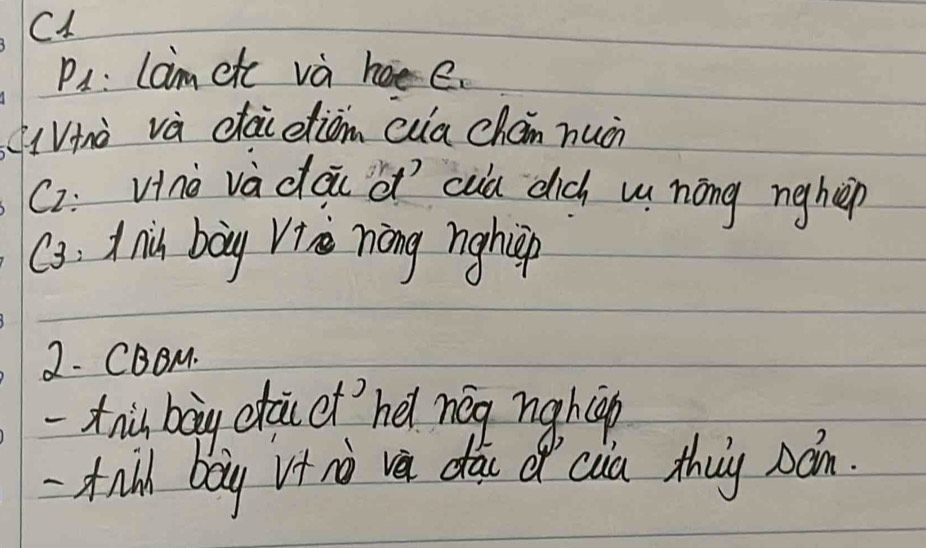 C1
P1: Làm đc và học C.
C1 Vtrò và đặc điểm của chăn nuôi
C2: vtrò và đặc đ' của dịch vụ nông nghiệp
C3: trình bày vtrò nông nghiệp
2- CBBM.
- trình bày đặc đ' hđ nôg nghiệp
- trình bày vtrò và đặc đ' của thủy sản.